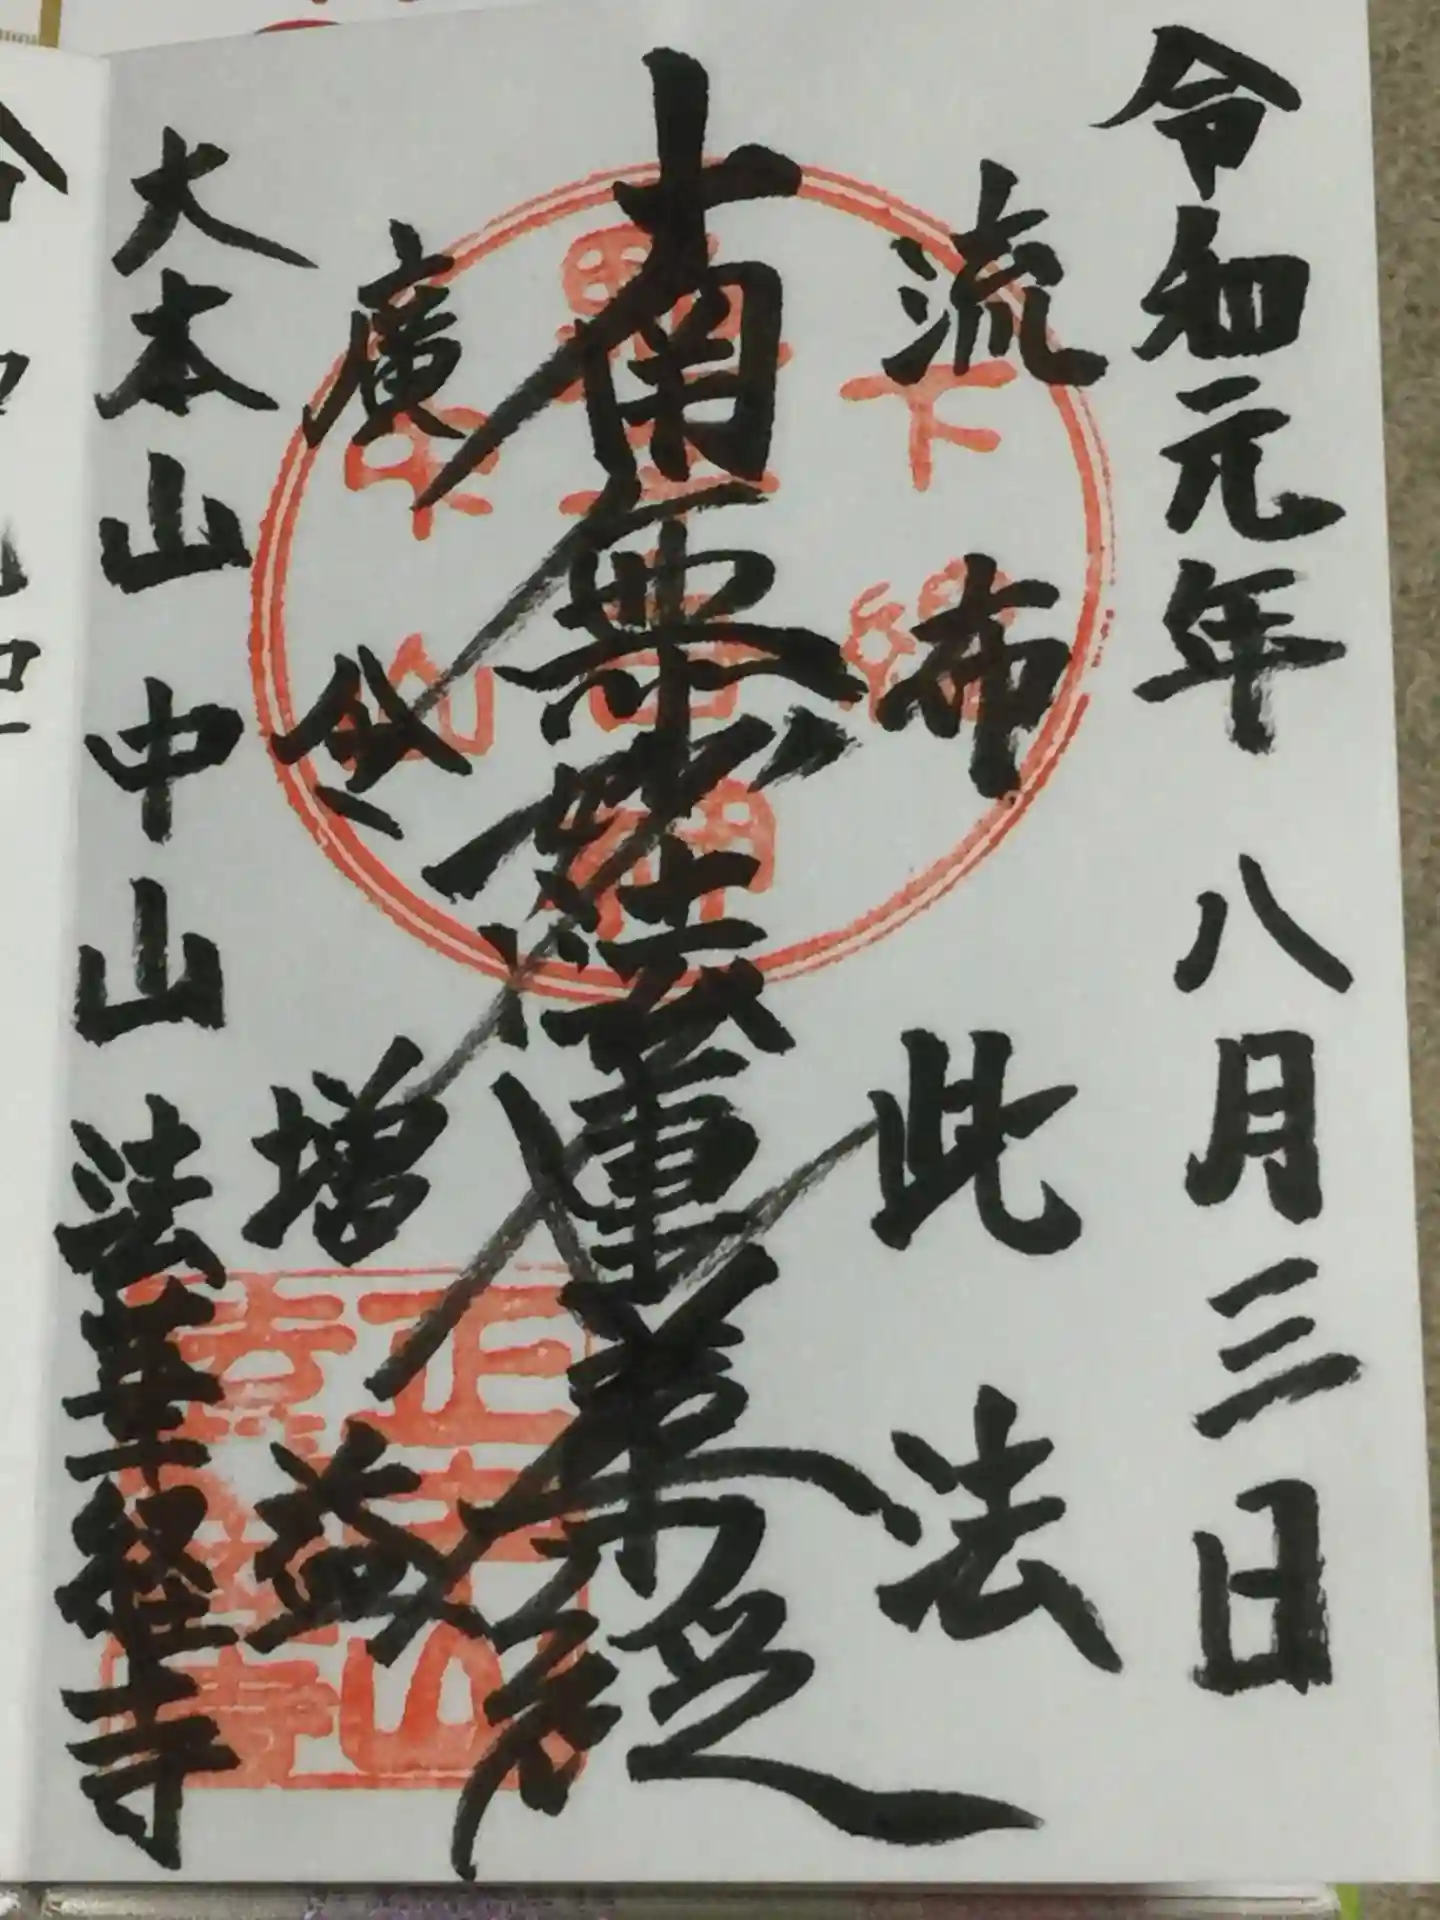 令和元年 八月三日
流布 此法
南無妙法蓮華経
廣
増益
大本山中山法華経寺